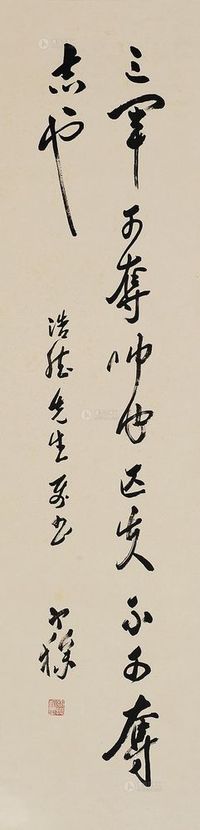 三军可夺帅也匹夫不可夺
志也
浩然先生属书